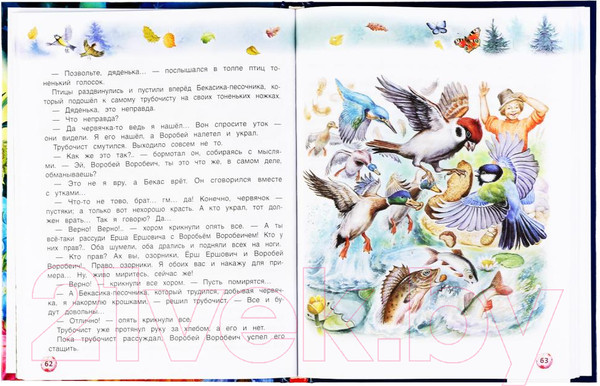 — Позвольте, дяденька... — послышался в толпе птиц то-
ненький голосок.
Птицы раздвинулись и пустили вперёд Бекасика-песочника,
который подошёл к самому трубочисту на своих тоненьких ножках.
— Дяденька, это неправда.
— Что неправда?
— Да червячка-то ведь я нашёл... Вон спросите уток —
они видели. Я его нашёл, а Воробей налетел и украл.
Трубочист смутился. Выходило совсем не то.
— Как же это так?.. — бормотал он, собираясь с мысля-
ми. — Эй, Воробей Воробеич, ты это что же, в самом деле,
обманываешь?
— Это не я вру, а Бекас врёт. Он сговорился вместе
с утками...
— Что-то не тово, брат... гм... да! Конечно, червячок —
пустяки; а только вот нехорошо красть. А кто украл, тот дол-
жен врать... Так я говорю? Да...
— Верно! Верно!.. — хором крикнули опять все. — А ты
всё-таки рассуди Ерша Ершовича с Воробьём Воробеичем! Кто
у них прав?.. Оба шумели, оба дрались и подняли всех на ноги.
— Кто прав? Ах вы, озорники, Ерш Ершович и Воробей
Воробеич!.. Право, озорники. Я обоих вас и накажу для при-
мера... Ну, живо миритесь, сейчас же!
— Верно! — крикнули все хором. — Пусть помирятся...
— А Бекасика-песочника, который трудился, добывая червяч-
ка, я накормлю крошками, — решил трубочист. — Все и бу-
дут довольны...
— Отлично! — опять крикнули все.
Трубочист уже протянул руку за хлебом, а его и нет.
Пока трубочист рассуждал, Воробей Воробеич успел его
стащить.
62
63
21vek.by
21vek.by